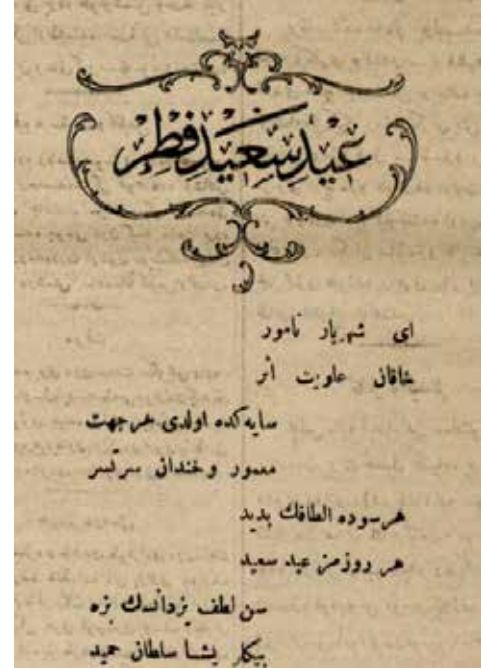 عيدِ سعيدِ فطر
ای شهریار نامور
خاقان علویت اثر
سایه‌كده اولدی هرجهت
معمور وخندان سرتسر
هرسوده الطافك پدید
هر روزمز عید سعید
سن لطف یزدانسك بزه
بیكلر یشا سلطان حمید